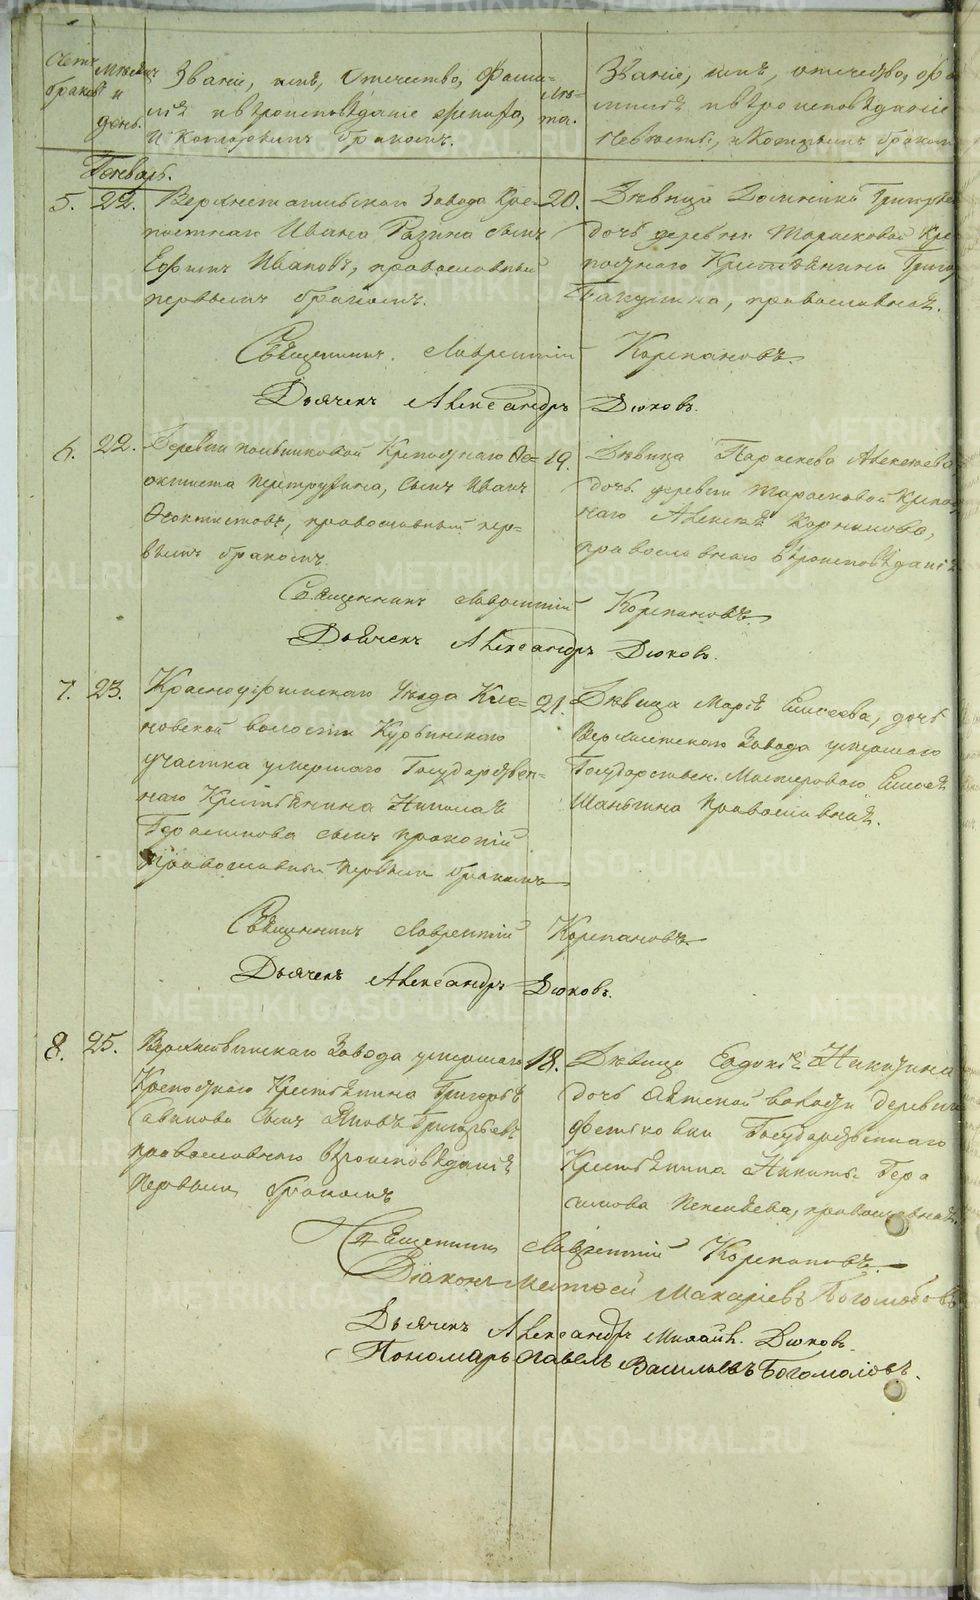 Счетъ браковъ
Мѣсяцъ и день.
Званіе, имя, отчество, фами-
лія и вѣроисповѣданіе жениха,
и которымъ бракомъ.
Лѣ-
та.
Званіе, имя, отчество, фа
милія и вѣроисповѣданіе
невѣсты, и которымъ бракомъ
Генварь.
5. 22. Верхнетагильскаго Завода Крѣ-
постнаго Ивана Разина сынъ
Ефимъ Ивановъ, православный
первымъ бракомъ.
20. Дѣвица Доминика Григорье
дочь деревни Тарасковой Крѣ
постнаго Крестьянина Григор
православная.
Священникъ Лаврентій Корепановъ.
Дьячекъ Александръ Дюковъ.
6. 22. Деревни Крѣпостнаго Ѳе-
октиста сынъ Иванъ
Ѳеоктистовъ, православный пер-
вымъ бракомъ.
19. Дѣвица Параскева Алексѣева
дочь деревни Тарасковой Крѣпос
наго Алексѣя Корнилова,
православнаго вѣроисповѣданія
Священникъ Лаврентій Корепановъ.
Дьячекъ Александръ Дюковъ.
7. 23. Красноуфимскаго Уѣзда Кле-
новской волости
участка умершаго Государствен-
наго Крестьянина Николая
Герасимова сынъ Прокопій
Православный первымъ бракомъ
21. Дѣвица Марія Елисеева, дочь
Завода умершаго
Государствен. Мастероваго Елисея
Шаньгина Православная.
Священникъ Лаврентій Корепановъ
Дьячекъ Александръ Дюковъ.
8. 25. Завода умершаго
Крѣпостнаго Крестьянина Григорья
Савинова сынъ Яковъ Григорьевъ
православнаго вѣроисповѣданія
Первымъ бракомъ
18. Дѣвица Евдокія Никитина
дочь Аятской волости деревни
Государственнаго
Крестьянина Никиты Гера
симова православная.
Священникъ Лаврентій Корепановъ.
Діаконъ Матѳей Макаріевъ Богомолов
Дьячекъ Александръ Михайл. Дюковъ.
Пономарь Павелъ Васильевъ Богомоловъ.
METRIKI.GASO-URAL.RU